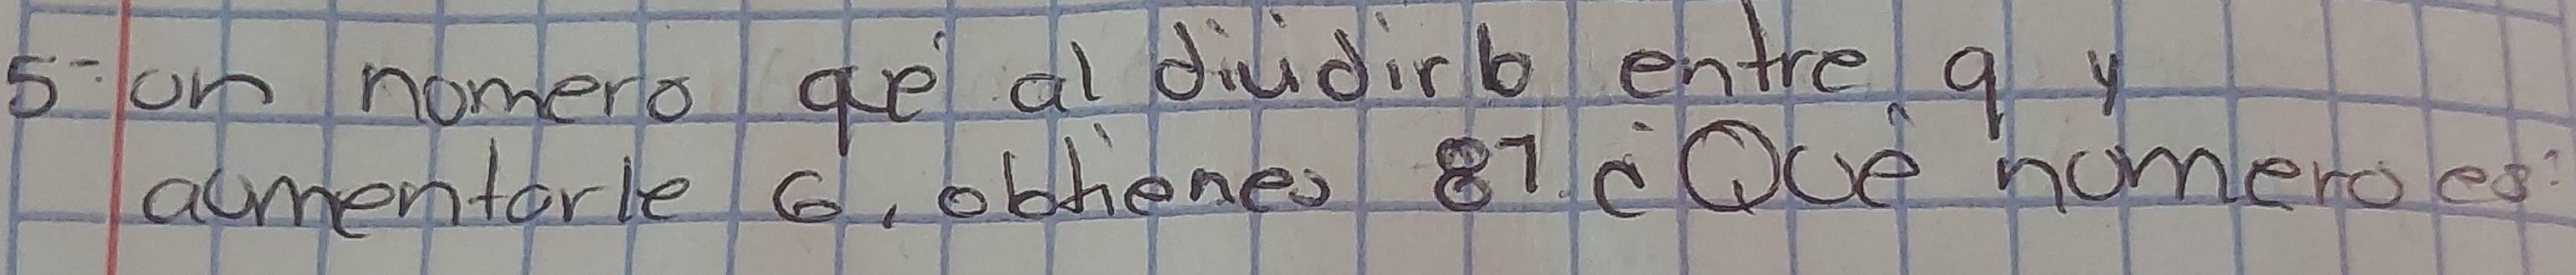 5- un nomero qe al dividirlo entre 9 y
aumentarle 6, obtienes 87. ¿Qué número es?